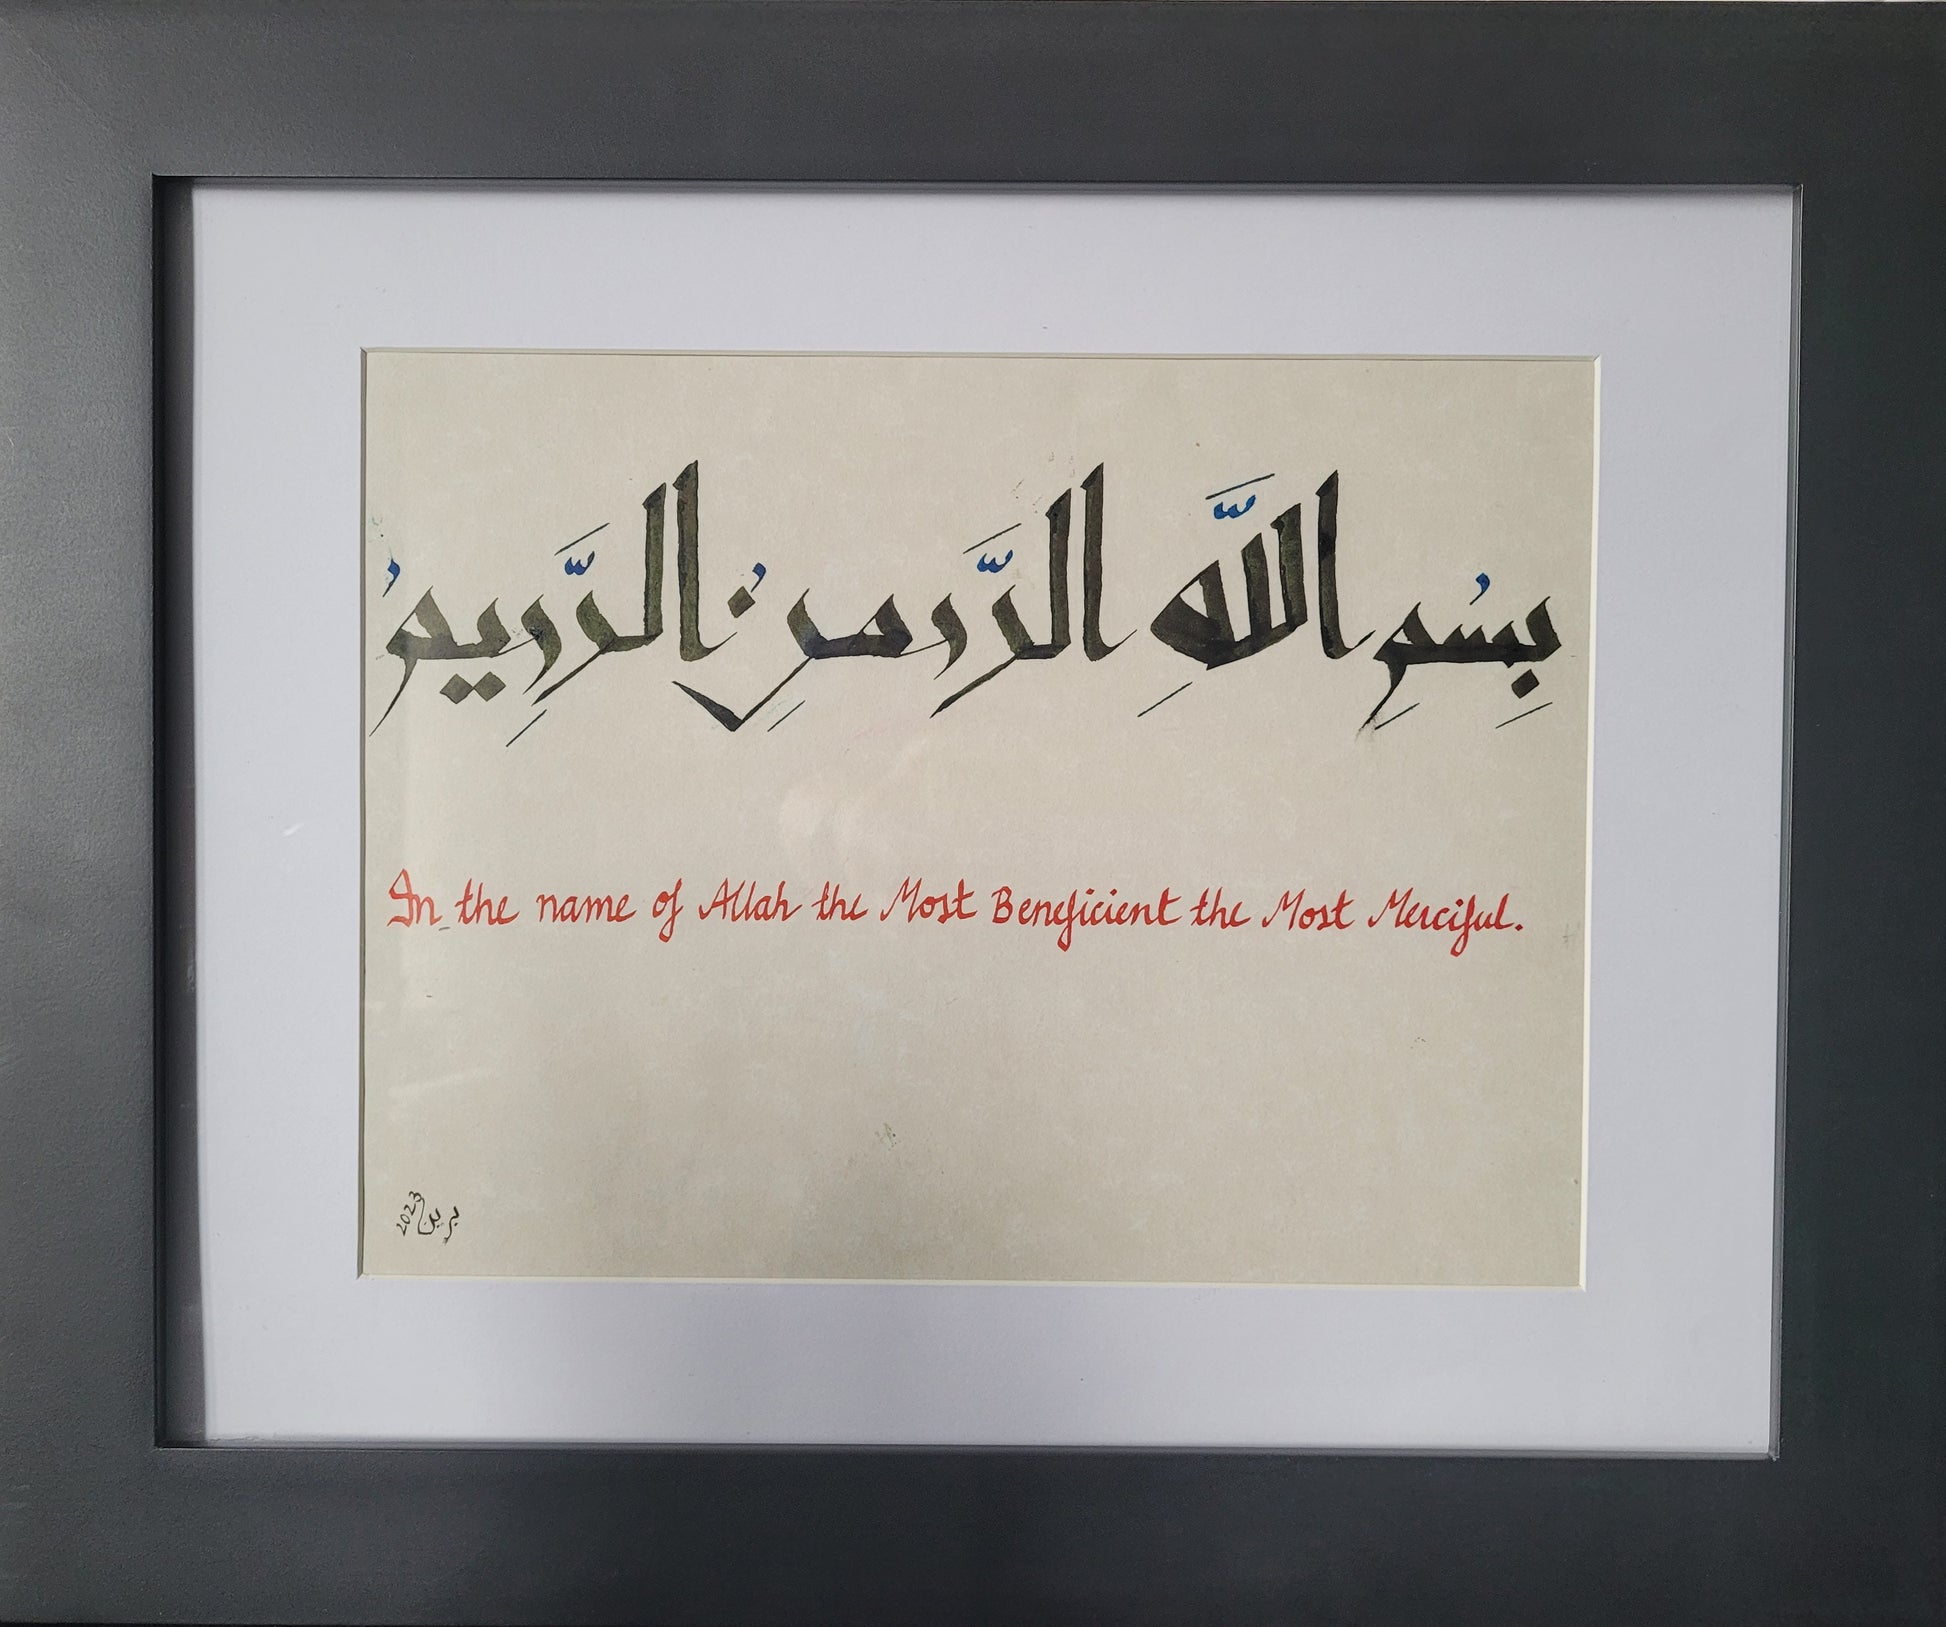 بِسْمِ اللَّهِ الرَّحمنِ الرَّحِيمْ
In the name of Allah the Most Beneficient the Most Merciful.
برين 2023